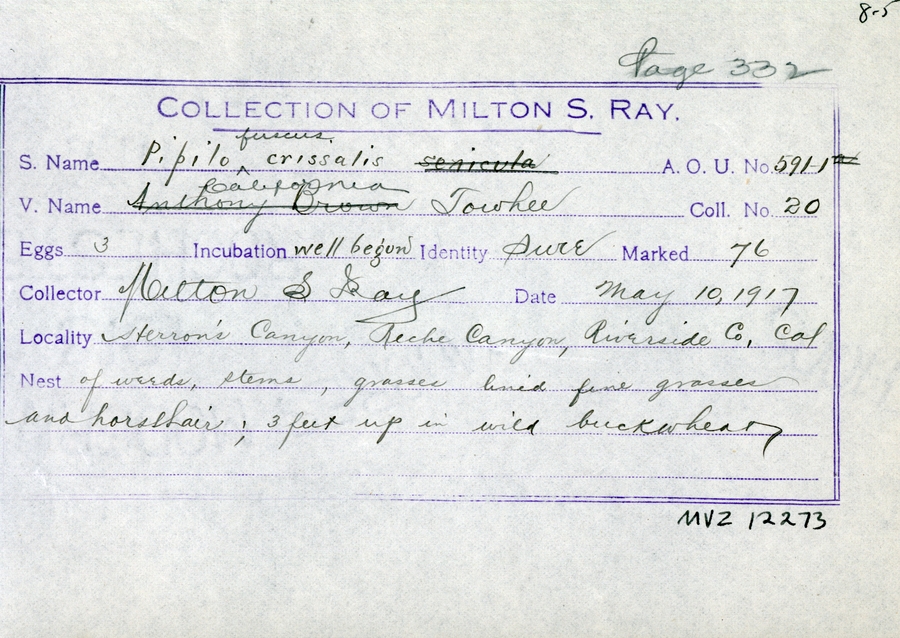 8-5
Page 332
COLLECTION OF MILTON S. RAY.
fuscus.
S. Name Pipilo ^ crissalis senicula A. O. U. No. 591-1
California
V. Name Anthony Brown Towhee Coll. No. 20
Eggs 3 Incubation well begun Identity Sure Marked 76
Collector Milton S Ray Date May 10, 1917
Locality Herron's Canyon, Reche Canyon, Riverside Co, Cal
Nest of weeds, stems, grasses lined fine grasses
and horsehair; 3 feet up in wild buckwheat
MVZ 12273